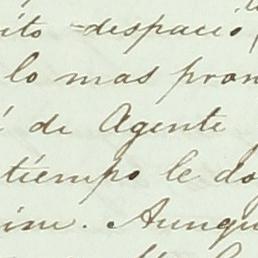 ito - despacio
lo mas pron
de Agente
tiempo le do
ine. Aunqu